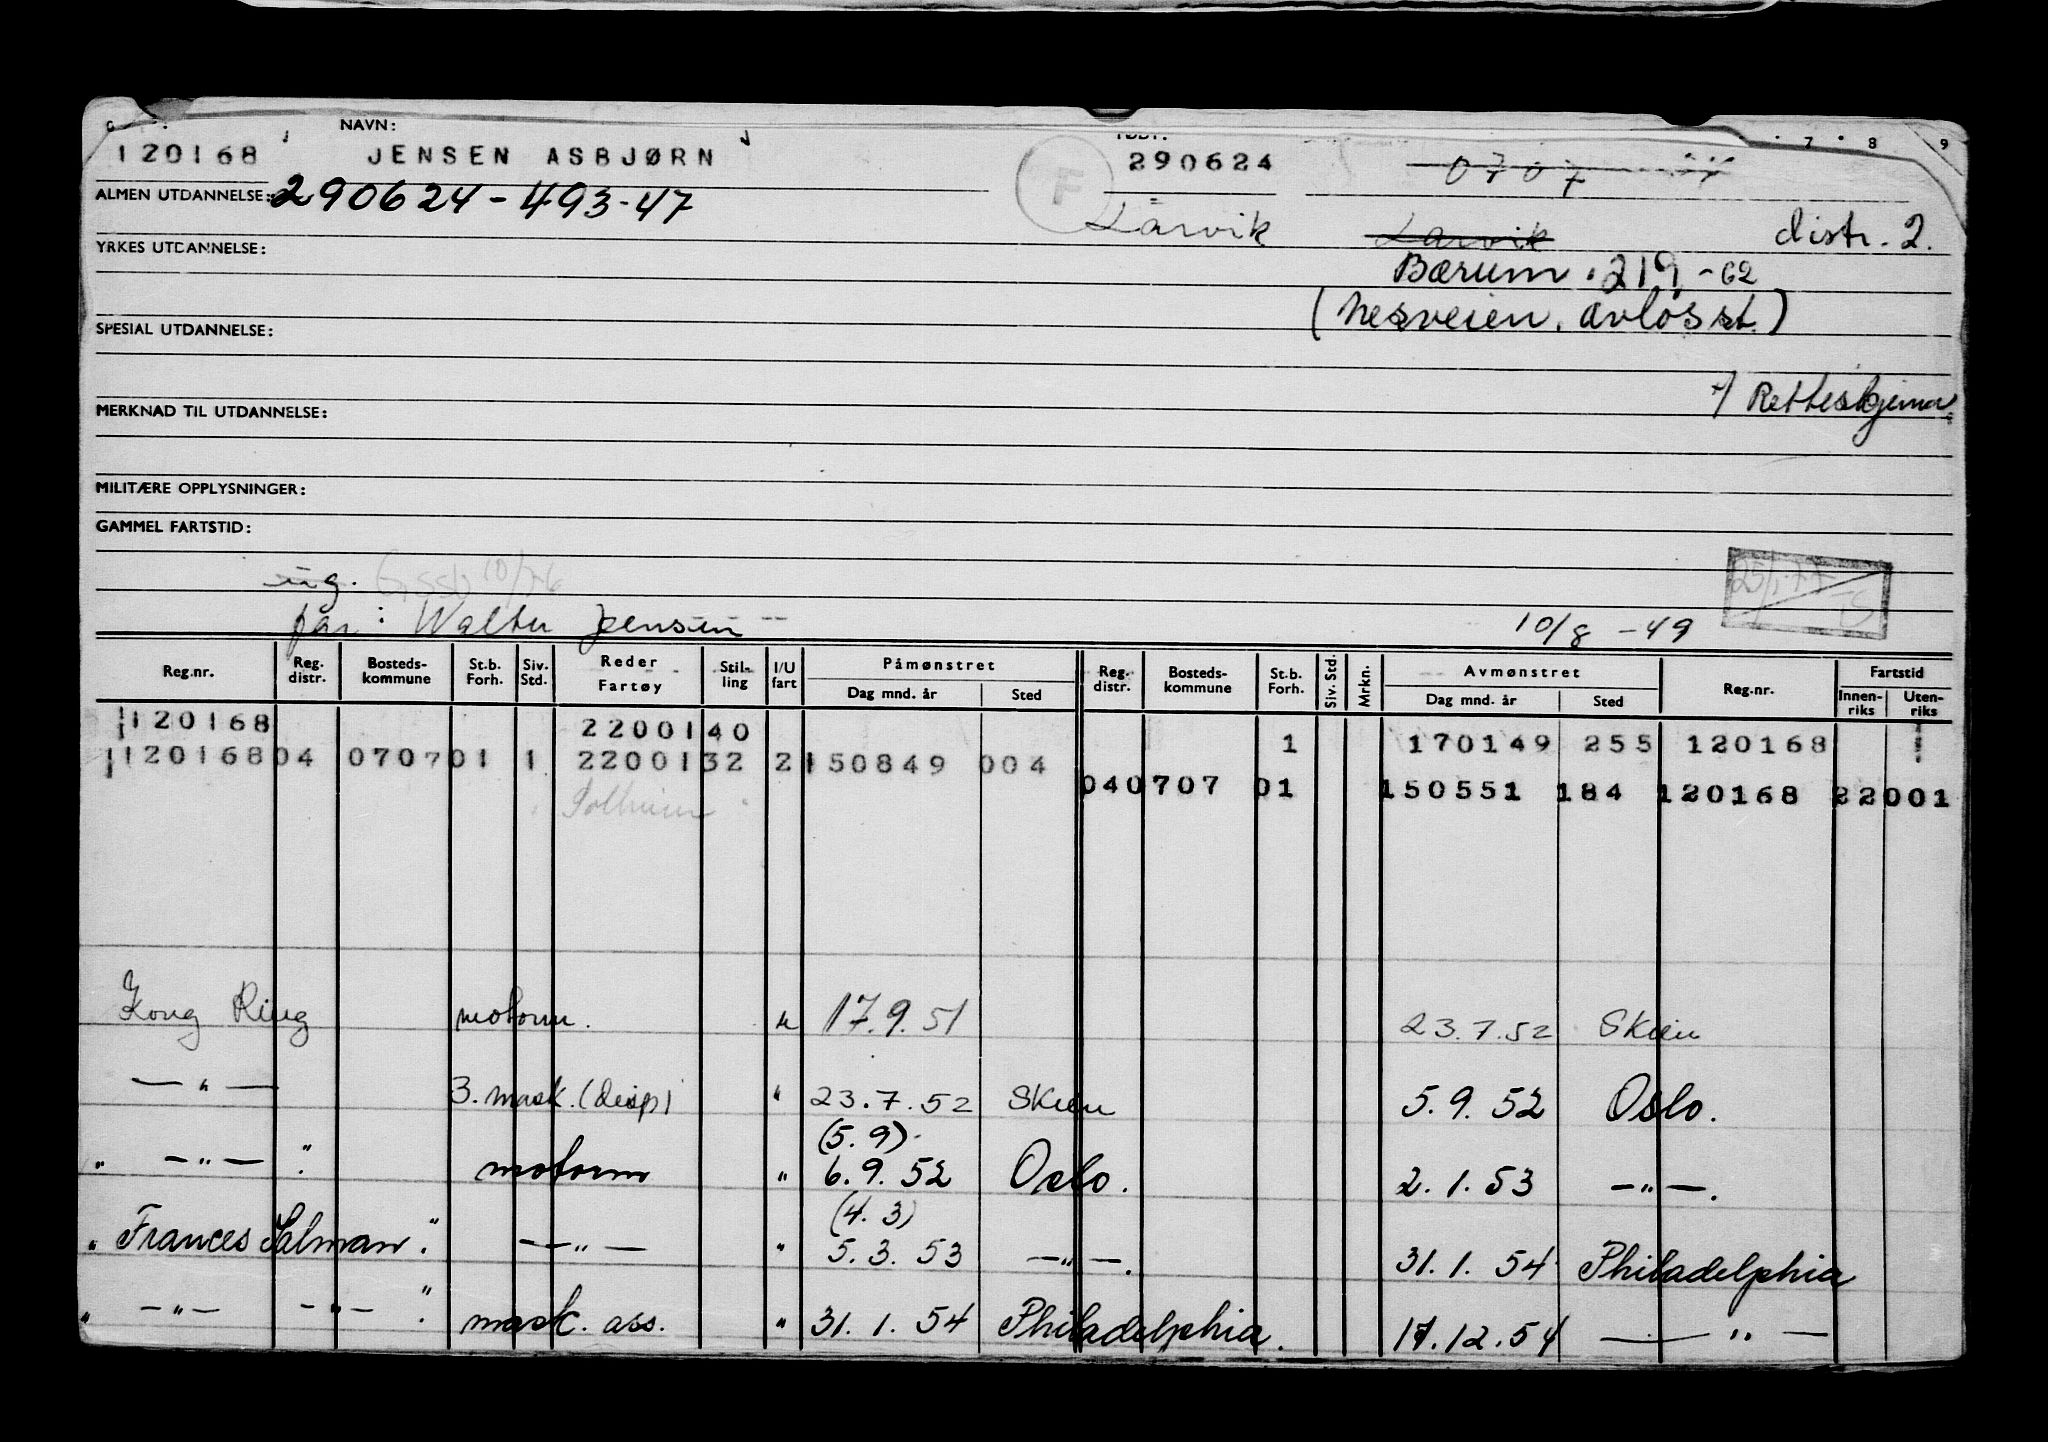 NAVN:
7 8 9
120168 JENSEN ASBJØRN 290624 0707
F
ALMEN UTDANNELSE: 290624-493-47
Larvik Larvik distr. 2.
YRKES UTDANNELSE:
Bærum 219-62
(Nesveien. Avløs st.)
SPESIAL UTDANNELSE:
Retteskjema
MERKNAD TIL UTDANNELSE:
MILITÆRE OPPLYSNINGER:
GAMMEL FARTSTID:
far: Walter Jensen 10/8 -49
Reg.nr. Reg. distr. Bosteds-kommune St.b. Forh. Siv. Std. Reder Fartøy Stil-ling I/U fart Påmønstret Dag mnd. år Sted Reg. distr. Bosteds-kommune St.b. Forh. Siv. Std. Mrkn. Avmønstret Dag mnd. år Sted Reg.nr. Fartstid Innen-riks Uten-riks
120168 2200140 1 170149 255 120168
12016804 070701 1 2200132 2150849 004
040707 01 150551 184 120168 22001
Solheim
Kong Ring motorm. u 17.9.51 23.7.52 Skien
— " — 3. mask. (disp) " 23.7.52 Skien 5.9.52 Oslo.
(5.9)
" — " — " motorm " 6.9.52 Oslo. 2.1.53 — " —.
(4.3)
" Frances Salman". — " — " 5.3.53 — " —. 31.1.54 Philadelphia
" — " — — " — " mask. ass. " 31.1.54 Philadelphia. 17.12.54 — " —